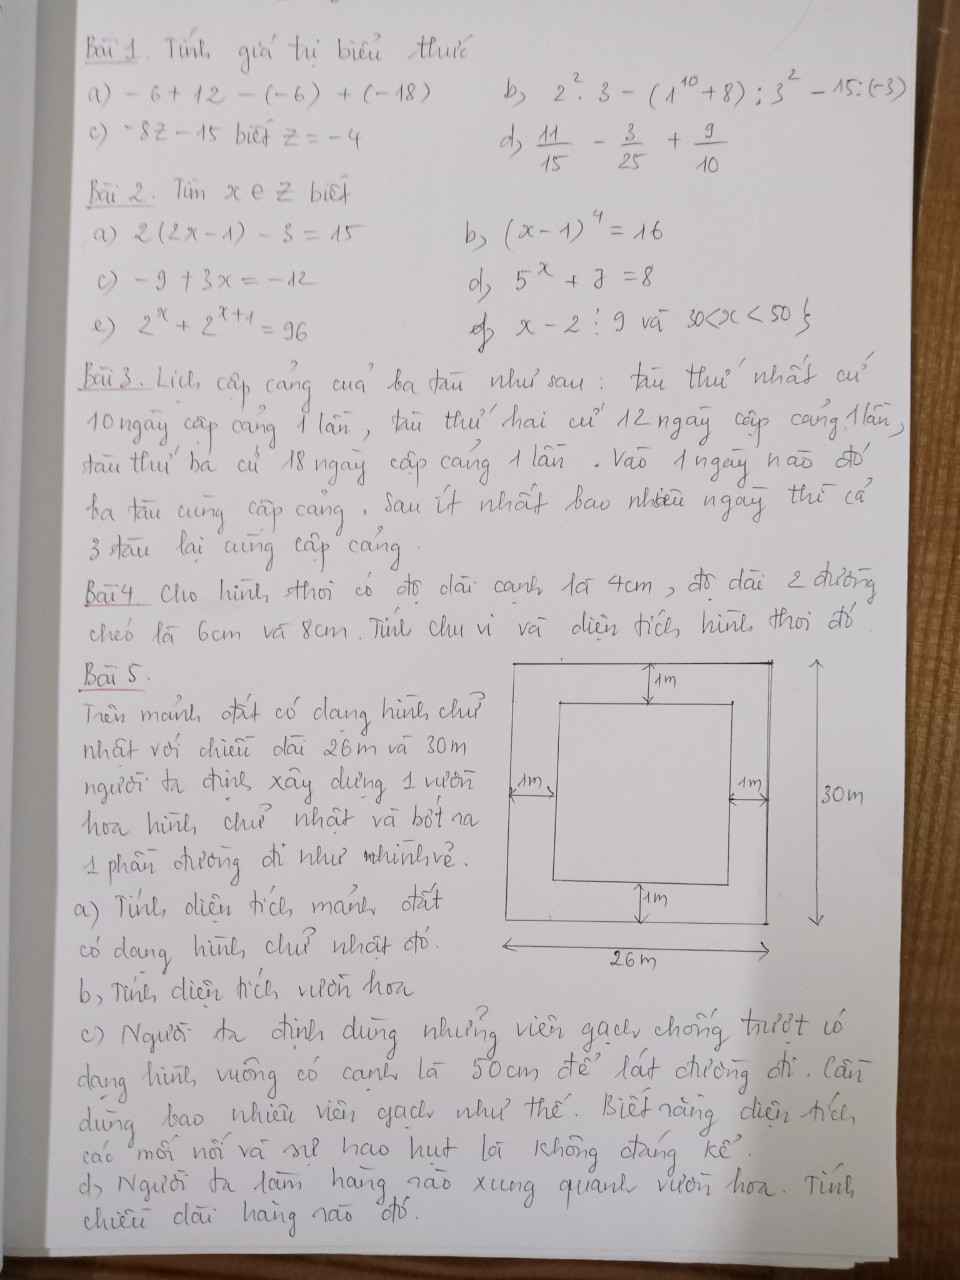 Bài 1. Tính giá trị biểu thức
a) - 6 + 12 - (-6) + (-18)
b, 2². 3 - (1¹⁰ + 8) : 3² - 15 : (-3)
c) -8z - 15 biết z = -4
d, 11/15 - 3/25 + 9/10
Bài 2. Tìm x ∈ Z biết
a) 2(2x - 1) - 3 = 15
b, (x - 1)⁴ = 16
c) -9 + 3x = -12
d, 5ˣ + 7 = 8
e) 2ˣ + 2ˣ⁺¹ = 96
f) x - 2 ⋮ 9 và 30 < x < 50
Bài 3. Lịch cập cảng của ba tàu như sau : tàu thứ nhất cứ
10 ngày cập cảng 1 lần, tàu thứ hai cứ 12 ngày cập cảng 1 lần,
tàu thứ ba cứ 18 ngày cập cảng 1 lần. Vào 1 ngày nào đó
ba tàu cùng cập cảng. Sau ít nhất bao nhiêu ngày thì cả
3 tàu lại cùng cập cảng.
Bài 4. Cho hình thoi có độ dài cạnh là 4cm, độ dài 2 đường
chéo là 6cm và 8cm. Tính chu vi và diện tích hình thoi đó
Bài 5.
Trên mảnh đất có dạng hình chữ
nhật với chiều dài 26m và 30m
người ta định xây dựng 1 vườn
hoa hình chữ nhật và bớt ra
1 phần đường đi như hình vẽ.
a) Tính diện tích mảnh đất
có dạng hình chữ nhật đó.
b, Tính diện tích vườn hoa
1m
1m
1m
30m
1m
26m
c) Người ta định dùng những viên gạch chống trượt có
dạng hình vuông có cạnh là 50cm để lát đường đi. Cần
dùng bao nhiêu viên gạch như thế. Biết rằng diện tích
các mối nối và sự hao hụt là không đáng kể.
d, Người ta làm hàng rào xung quanh vườn hoa. Tính
chiều dài hàng rào đó.